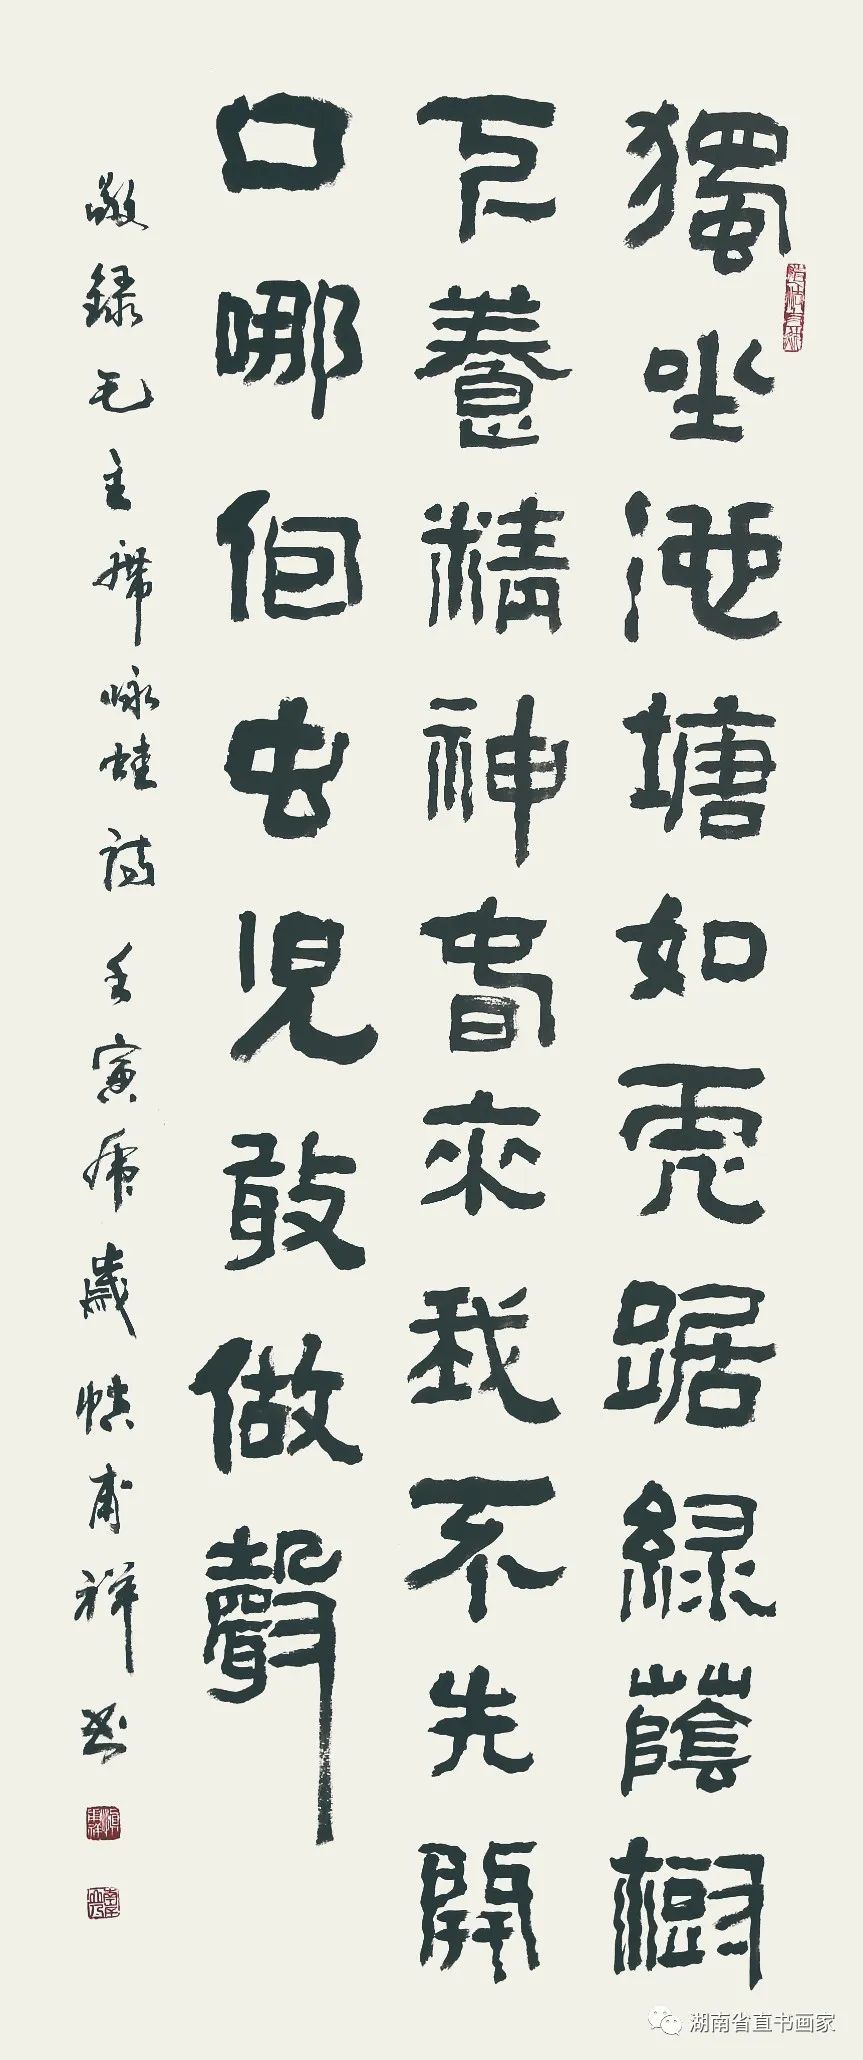 獨坐池塘如虎踞綠蔭樹
下養精神春來我不先開
口哪個虫兒敢做聲
敬録毛主席咏蛙詩 壬寅虎歲 甫祥书
湖南省直书画家